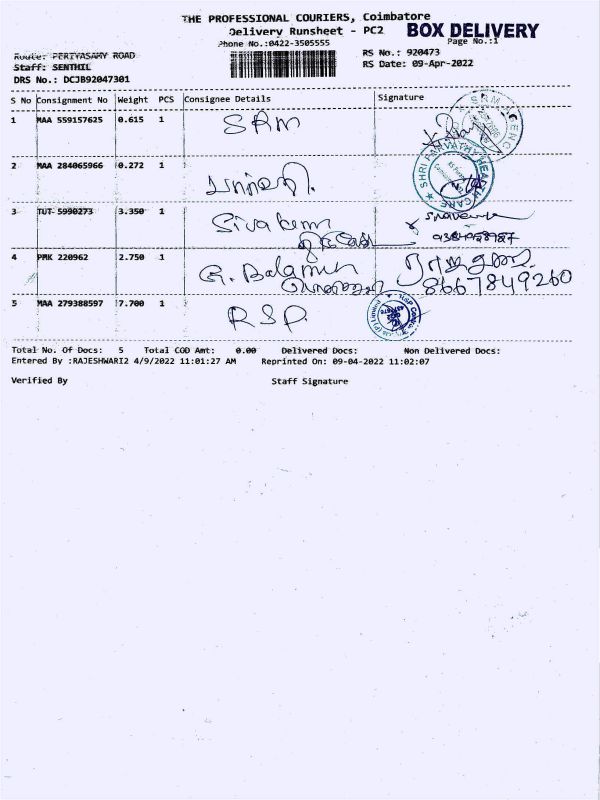 THE PROFESSIONAL COURIERS, Coimbatore
Delivery Runsheet - PC2 BOX DELIVERY
Phone No.:0422-3505555 Page No.:1
Route: PERIYASAMY ROAD RS No.: 920473
Staff: SENTHIL RS Date: 09-Apr-2022
DRS No.: DCJB92047301
S No Consignment No Weight PCS Consignee Details Signature
1 MAA 559157625 0.615 1 SRM
2 MAA 284065966 0.272 1
SHRI PARVATHY HEALTH CARE
3 TUT 5990273 3.350 1 Sivakam
4 PMK 220962 2.750 1 G. Balamur
8667849260
5 MAA 279388597 7.700 1 RSP
Total No. Of Docs: 5 Total COD Amt: 0.00 Delivered Docs: Non Delivered Docs:
Entered By :RAJESHWARI2 4/9/2022 11:01:27 AM Reprinted On: 09-04-2022 11:02:07
Verified By Staff Signature